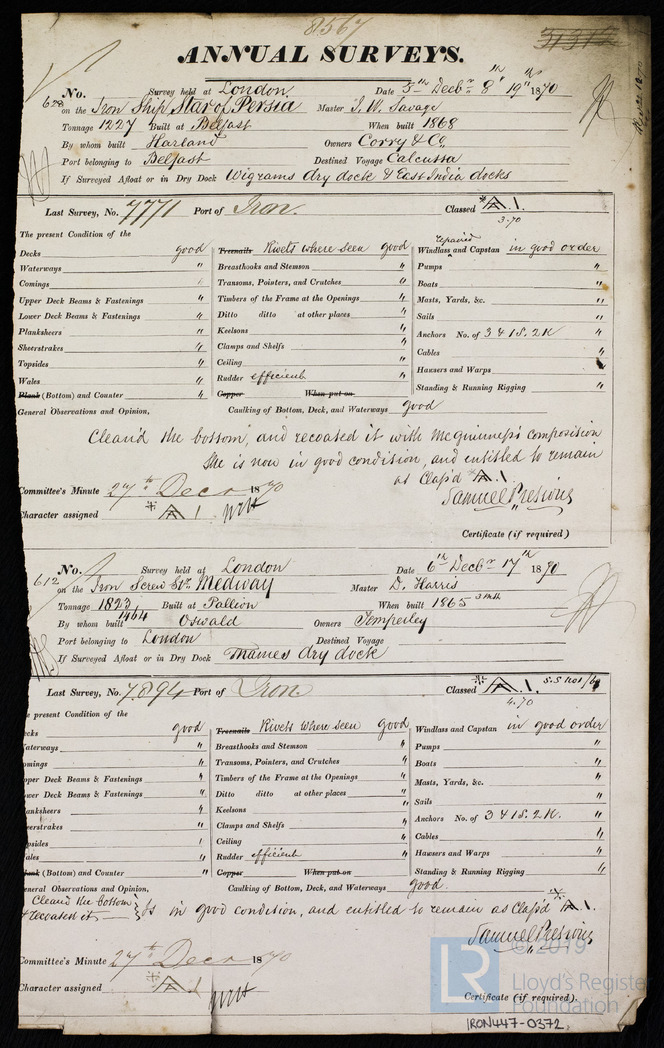 8567
ANNUAL SURVEYS.
No. 628 Survey held at London Date 5th Decbr 8th 19th 1870
on the Iron Ship Star of Persia Master J. W. Savage
Tonnage 1227 Built at Belfast When built 1868
By whom built Harland Owners Corry & Co.
Port belonging to Belfast Destined Voyage Calcutta
If Surveyed Afloat or in Dry Dock Wigrams dry dock & East India docks
Last Survey, No. 7771 Port of Iron. Classed A 1.
3.70
The present Condition of the
Decks good Treenails Rivets where seen good repaired Windlass and Capstan in good order
Waterways " Breasthooks and Stemson " Pumps "
Comings " Transoms, Pointers, and Crutches " Boats "
Upper Deck Beams & Fastenings " Timbers of the Frame at the Openings " Masts, Yards, &c. "
Lower Deck Beams & Fastenings " Ditto ditto at other places " Sails "
Planksheers " Keelsons " Anchors No. of 3 4 1S. 2K "
Sheerstrakes " Clamps and Shelfs " Cables "
Topsides " Ceiling " Hawsers and Warps "
Wales " Rudder efficient " Standing & Running Rigging "
Plank (Bottom) and Counter " Copper When put on
General Observations and Opinion, Caulking of Bottom, Deck, and Waterways good
Clean'd the bottom, and recoated it with McGuinness's Composition
She is now in good condition, and entitled to remain
as Class'd A. 1.
Committee's Minute 27th Decr 1870 Samuel Pretious
Character assigned A 1
Certificate (if required)
No. 612 Survey held at London Date 6th Decbr 17th 1870
on the Iron Screw Str. Medway Master D. Harris
Tonnage 1823 Built at Pallion When built 1865 3 Mth
1464
By whom built Oswald Owners Temperley
Port belonging to London Destined Voyage
If Surveyed Afloat or in Dry Dock Thames dry dock
Last Survey, No. 7894 Port of Iron. Classed A. 1.
4.70
e present Condition of the
cks good Treenails Rivets where seen good Windlass and Capstan in good order
aterways " Breasthooks and Stemson " Pumps "
omings " Transoms, Pointers, and Crutches " Boats "
pper Deck Beams & Fastenings " Timbers of the Frame at the Openings " Masts, Yards, &c. "
wer Deck Beams & Fastenings " Ditto ditto at other places " Sails "
anksheers " Keelsons " Anchors No. of 3 4 1S. 2K. "
eerstrakes " Clamps and Shelfs " Cables "
psides " Ceiling " Hawsers and Warps "
ales " Rudder efficient " Standing & Running Rigging "
lank (Bottom) and Counter " Copper When put on
eneral Observations and Opinion, Caulking of Bottom, Deck, and Waterways good
Clean'd the bottom
& recoated it Is in good condition, and entitled to remain as Class'd A 1.
Samuel Pretious
Committee's Minute 27th Decr 1870
Character assigned A 1
Certificate (if required).
© 2019
LR Lloyd's Register
Foundation
IRON447-0372